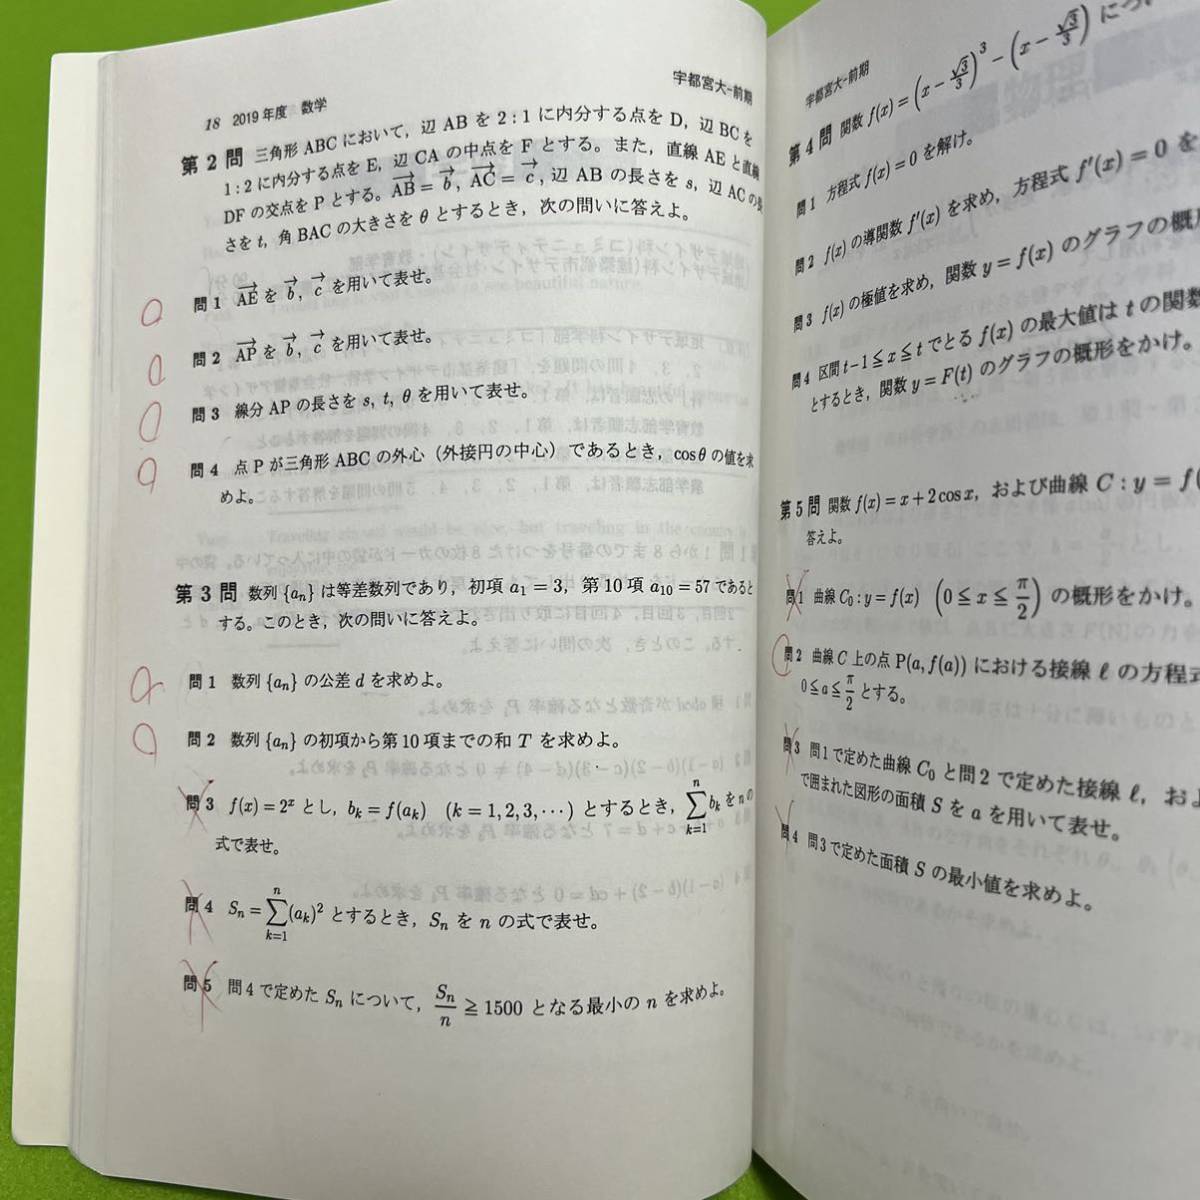 18 2019年度 数学
宇都宮大-前期
第2問 三角形ABCにおいて，辺ABを2:1に内分する点をD，辺BCを
1:2に内分する点をE，辺CAの中点をFとする。また，直線AEと直線
DFの交点をPとする。$\overrightarrow{AB}=\vec{b}$，$\overrightarrow{AC}=\vec{c}$，辺ABの長さをs，辺ACの長
さをt，角BACの大きさをθとするとき，次の問いに答えよ。
問1 $\overrightarrow{AE}$を$\vec{b}$，$\vec{c}$を用いて表せ。
問2 $\overrightarrow{AP}$を$\vec{b}$，$\vec{c}$を用いて表せ。
問3 線分APの長さをs, t, θを用いて表せ。
問4 点Pが三角形ABCの外心（外接円の中心）であるとき，cosθの値を求
めよ。
第3問 数列{aₙ}は等差数列であり，初項a₁=3，第10項a₁₀=57であると
する。このとき，次の問いに答えよ。
問1 数列{aₙ}の公差dを求めよ。
問2 数列{aₙ}の初項から第10項までの和Tを求めよ。
問3 f(x)=2ˣとし，bₖ=f(aₖ) (k=1,2,3,⋯)とするとき，$\sum_{k=1}^{n} b_k$をnの
式で表せ。
問4 $S_n=\sum_{k=1}^{n}(a_k)^2$とするとき，Sₙをnの式で表せ。
問5 問4で定めたSₙについて，$\frac{S_n}{n}$≧1500となる最小のnを求めよ。
宇都宮大-前期
第4問 関数 $f(x)=\left(x-\frac{\sqrt{3}}{3}\right)^3-\left(x-\frac{\sqrt{3}}{3}\right)$につ
問1 方程式f(x)=0を解け。
問2 f(x)の導関数f′(x)を求め，方程式f′(x)=0を
問3 f(x)の極値を求め，関数y=f(x)のグラフの概形
問4 区間t-1≦x≦tでとるf(x)の最大値はtの関数
とするとき，関数y=F(t)のグラフの概形をかけ。
第5問 関数f(x)=x+2cosx，および曲線C:y=f(
答えよ。
問1 曲線C₀:y=f(x) $\left(0≦x≦\frac{\pi}{2}\right)$の概形をかけ。
問2 曲線C上の点P(a, f(a))における接線ℓの方程式
$0≦a≦\frac{\pi}{2}$とする。
問3 問1で定めた曲線C₀と問2で定めた接線ℓ，およ
で囲まれた図形の面積Sをaを用いて表せ。
問4 問3で定めた面積Sの最小値を求めよ。